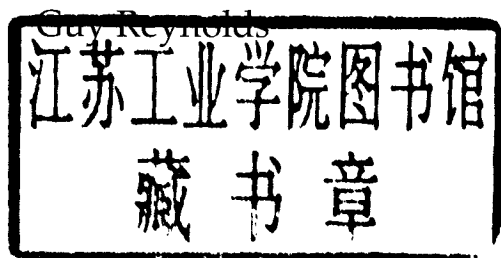 Guy Reynolds
江苏工业学院图书馆
藏书章